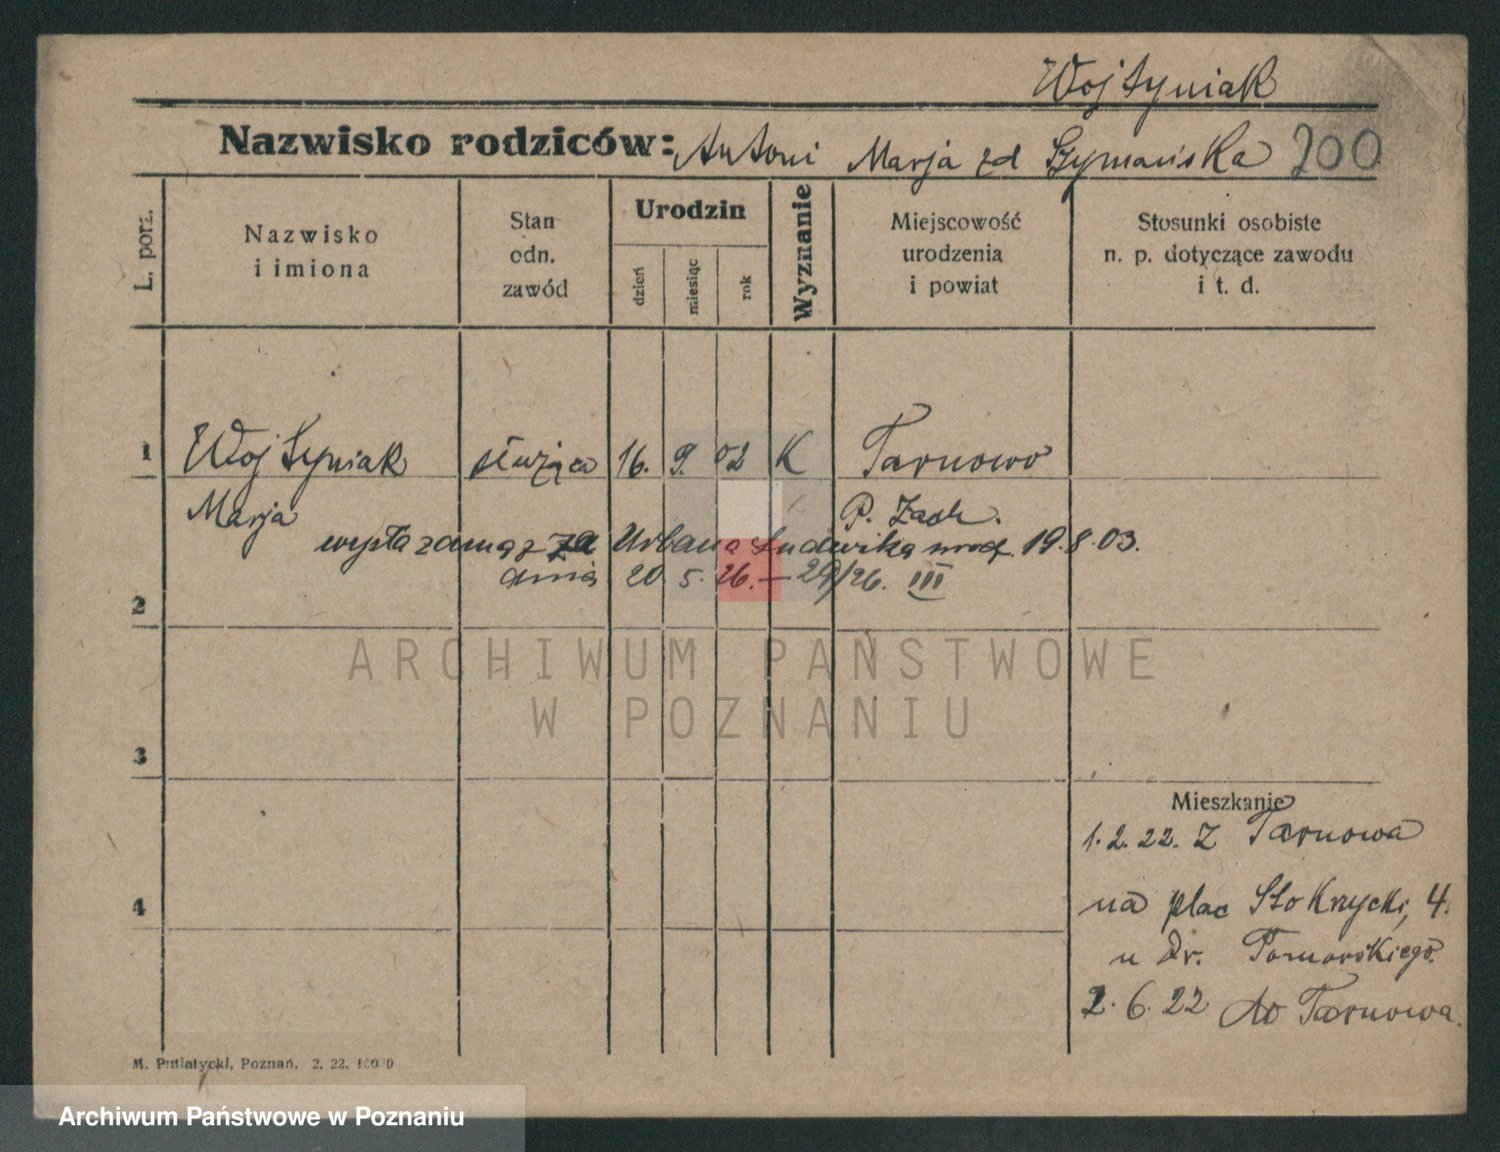 Wojtyniak
Nazwisko rodziców: Antoni Marja zd Szymańska 200
L. porz.
Nazwisko
i imiona
Stan
odn.
zawód
Urodzin
dzień
miesiąc
rok
Wyznanie
Miejscowość
urodzenia
i powiat
Stosunki osobiste
n. p. dotyczące zawodu
i t. d.
1 Wojtyniak służąca 16. 9. 02 K Tarnowo
Marja P. Zach.
wyszła zamąż za Urbana Ludwika urodz. 19.8.03.
dnia 20 5. 26. – 29/26. III
2
ARCHIWUM PAŃSTWOWE
W POZNANIU
3
Mieszkanie
1.2.22. Z Tarnowa
4
na plac Sto Krzycki, 4.
u Dr. Pomorskiego.
2.6.22 do Tarnowa.
M. Putiatycki, Poznań. 2. 22.
Archiwum Państwowe w Poznaniu